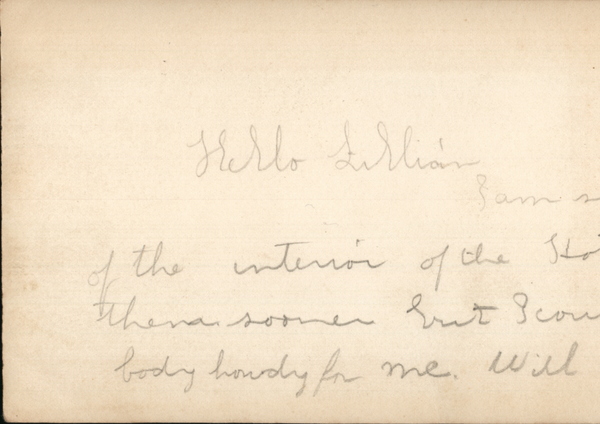 Hello Lillian
I am s
of the interior of the Hot
them sooner But I cou
body howdy for me. Will